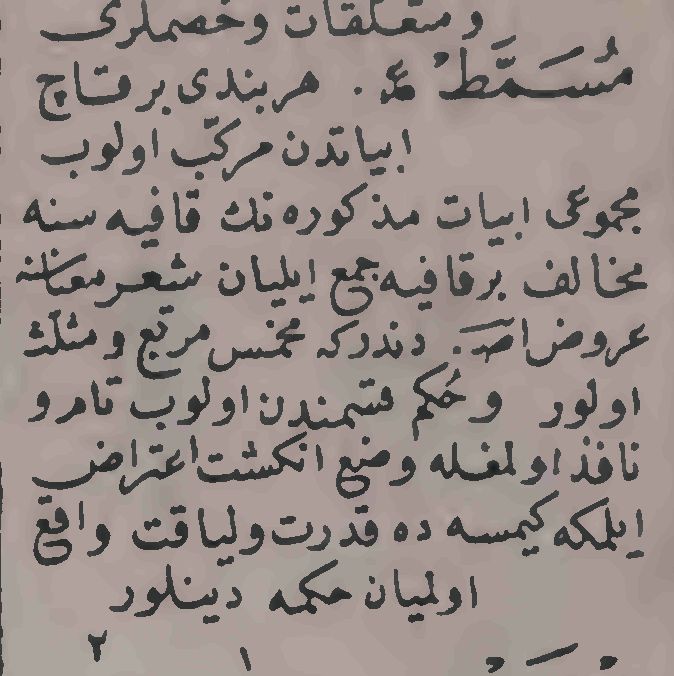 و متعلقات وخصملری
مُسَمَّط ع . هر بندی بر قاچ
ابیاتدن مرکّب اولوب
مجموعی ابیات مذکوره نك قافیه سنه
مخالف بر قافیه جمع ایلیان شعر معناسنه
عروض اصـ . دندرکه مخمّس مربّع و مثلّث
اولور وحُکم قسمندن اولوب تام و
نافذ اولمغله وضع انکشت اعتراض
ایلمکه کیمسه ده قدرت ولیاقت واقع
اولمیان حکمه دینلور
۱ ۲